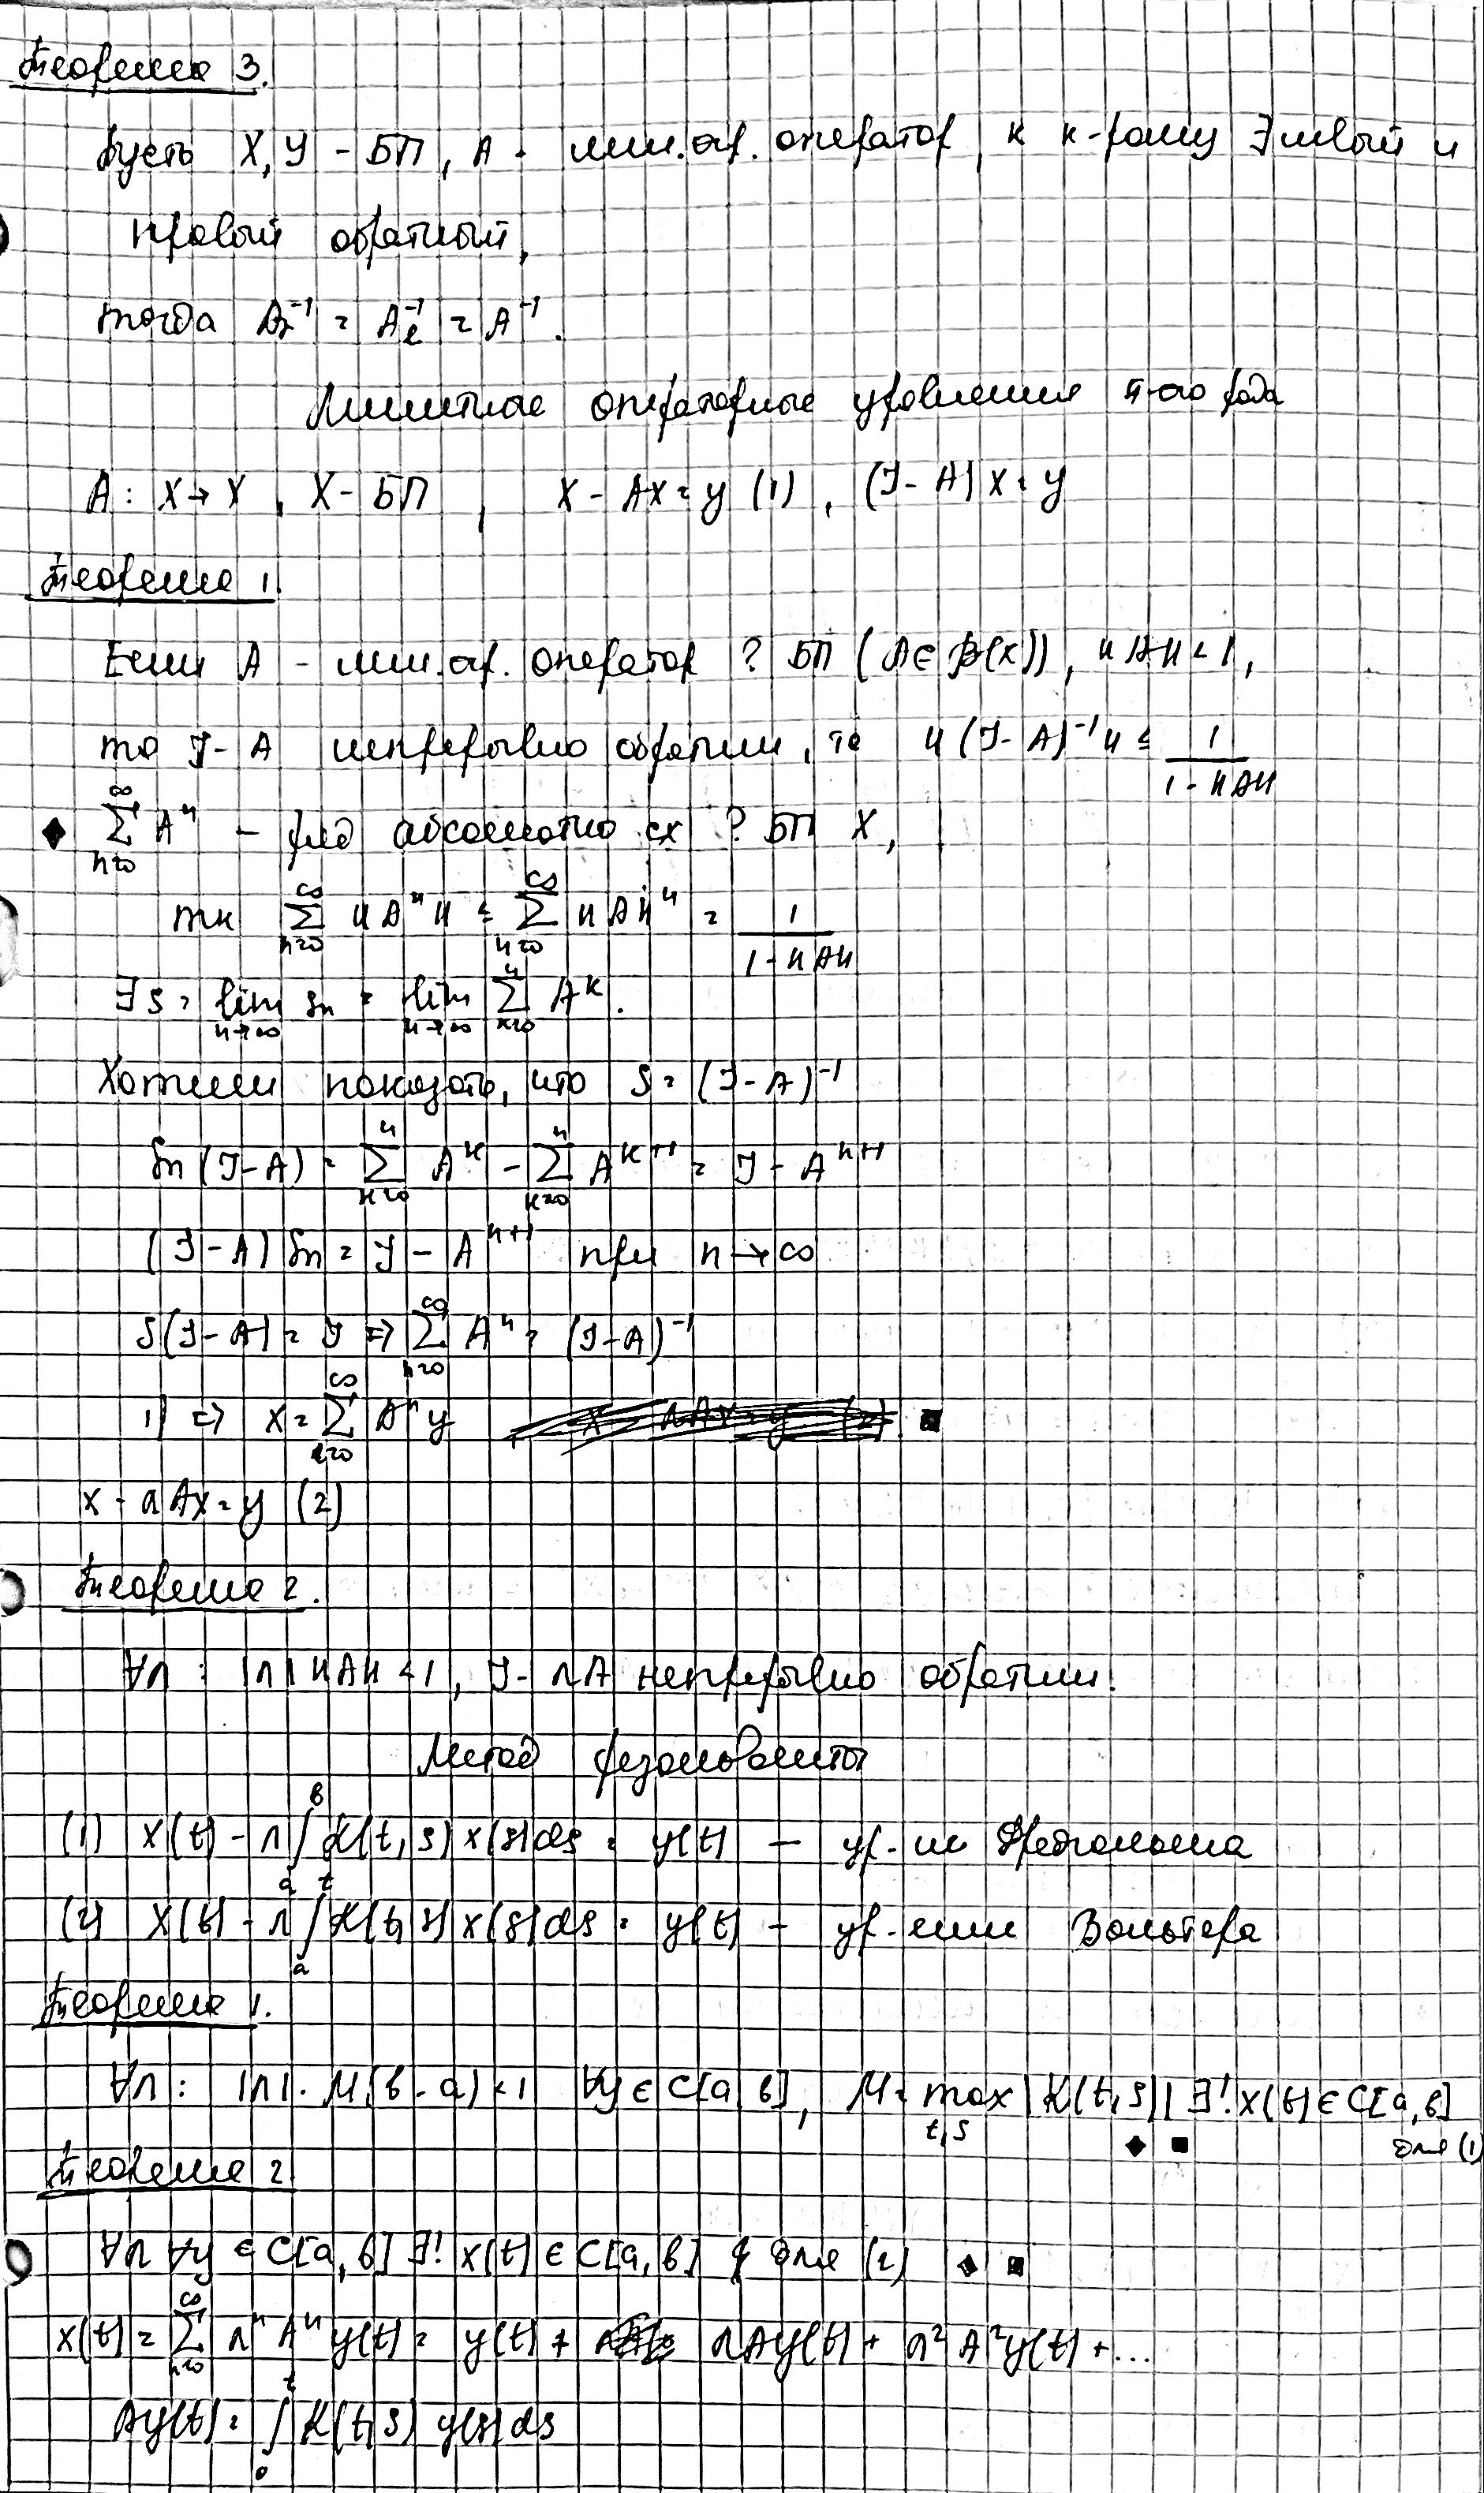 Теорема 3.
Пусть X, Y - БП, A - лин. огр. оператор, к к-рому ∃ левый и
правый обратный,
тогда A_r^{-1} = A_l^{-1} = A^{-1}.
Линейные операторные уравнения II-ого рода
A: X → X, X - БП, X - AX = y (1), (I - A) X = y
Теорема 1.
Если A - лин. огр. оператор ? БП (A ∈ B(X)), ‖A‖ < 1,
то I - A непрерывно обратим, те ‖(I - A)^{-1}‖ ≤ 1/(1 - ‖A‖)
◆ ∑_{n=0}^{∞} A^n - ряд абсолютно сх ? БП X,
тк ∑_{n=0}^{∞} ‖A^n‖ ≤ ∑_{n=0}^{∞} ‖A‖^n = 1/(1 - ‖A‖)
∃ S = lim_{n→∞} S_n = lim_{n→∞} ∑_{k=0}^{n} A^k.
Хотим показать, что S = (I - A)^{-1}
S_n (I - A) = ∑_{k=0}^{n} A^k - ∑_{k=0}^{n} A^{k+1} = I - A^{n+1}
(I - A) S_n = I - A^{n+1} при n → ∞
S(I - A) = I ⇒ ∑_{n=0}^{∞} A^n = (I - A)^{-1}
1) ⇒ x = ∑_{n=0}^{∞} A^n y ■
x - λAx = y (2)
Теорема 2.
∀λ : |λ| ‖A‖ < 1, I - λA непрерывно обратим.
Метод резольвенты
(1) x(t) - λ∫_a^b K(t, s) x(s) ds = y(t) - ур-ие Фредгольма
(2) x(t) - λ∫_a^t K(t, s) x(s) ds = y(t) - ур-ние Вольтера
Теорема 1.
∀λ : |λ| · M(b - a) < 1 ∀y ∈ C[a, b], M = max_{t,s} |K(t, s)| ∃! x(t) ∈ C[a, b]
◆ ■ для (1)
Теорема 2
∀λ ∀y ∈ C[a, b] ∃! x(t) ∈ C[a, b] для (2) ◆ ■
x(t) = ∑_{n=0}^{∞} λ^n A^n y(t) = y(t) + λAy(t) + λ^2 A^2 y(t) + ...
Ay(t) = ∫_0^t K(t, s) y(s) ds